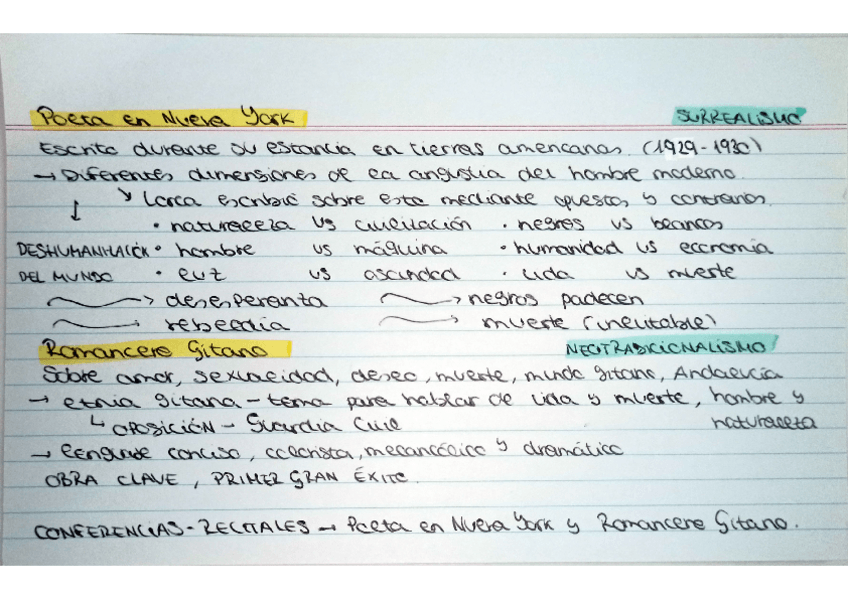 Poeta en Nueva York SURREALISMO
Escrito durante su estancia en tierras americanas. (1929-1930)
→ Diferentes dimensiones de la angustia del hombre moderno.
↘ Lorca escribió sobre esto mediante opuestos y contrarios.
↓ • naturaleza vs civilización • negros vs blancos
DESHUMANIZACIÓN • hombre vs máquina • humanidad vs economía
DEL MUNDO • luz vs oscuridad • vida vs muerte
→ desesperanza → negros padecen
→ rebeldía → muerte (inevitable)
Romancero Gitano NEOTRADICIONALISMO
Sobre amor, sexualidad, deseo, muerte, mundo gitano, Andalucía
→ etnia gitana - tema para hablar de vida y muerte, hombre y
↳ OPOSICIÓN - Guardia Civil naturaleza
→ Lenguaje conciso, colorista, melancólico y dramático
OBRA CLAVE, PRIMER GRAN ÉXITO.
CONFERENCIAS-RECITALES → Poeta en Nueva York y Romancero Gitano.